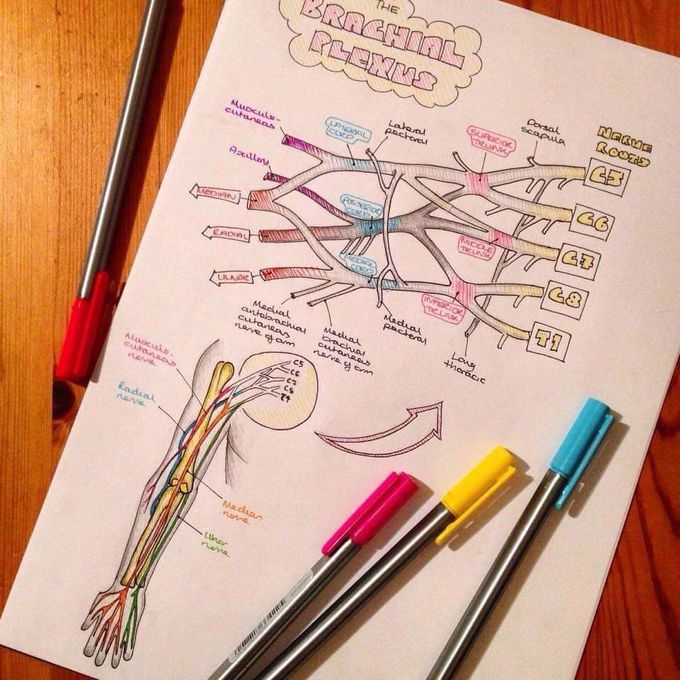 THE
BRACHIAL
PLEXUS
Musculo-
cutaneas
LATERAL
CORD
Lateral
pectoral
SUPERIOR
TRUNK
Dorsal
scapula
NERVE
ROOTS
Axillary
C5
MEDIAN
POSTERIOR
CORD
C6
RADIAL
MIDDLE
TRUNK
C7
ULNER
MEDIAL
CORD
INFERIOR
TRUNK
C8
T1
Medial
antobrachial
cutaneas
nerve of arm
Medial
brachial
cutaneas
nerve of arm
Medial
pectoral
Long
thoracic
Musculo-
cutaneas
nerve
C5
C6
C7
C8
Radial
nerve
Median
nerve
Ulnar
nerve